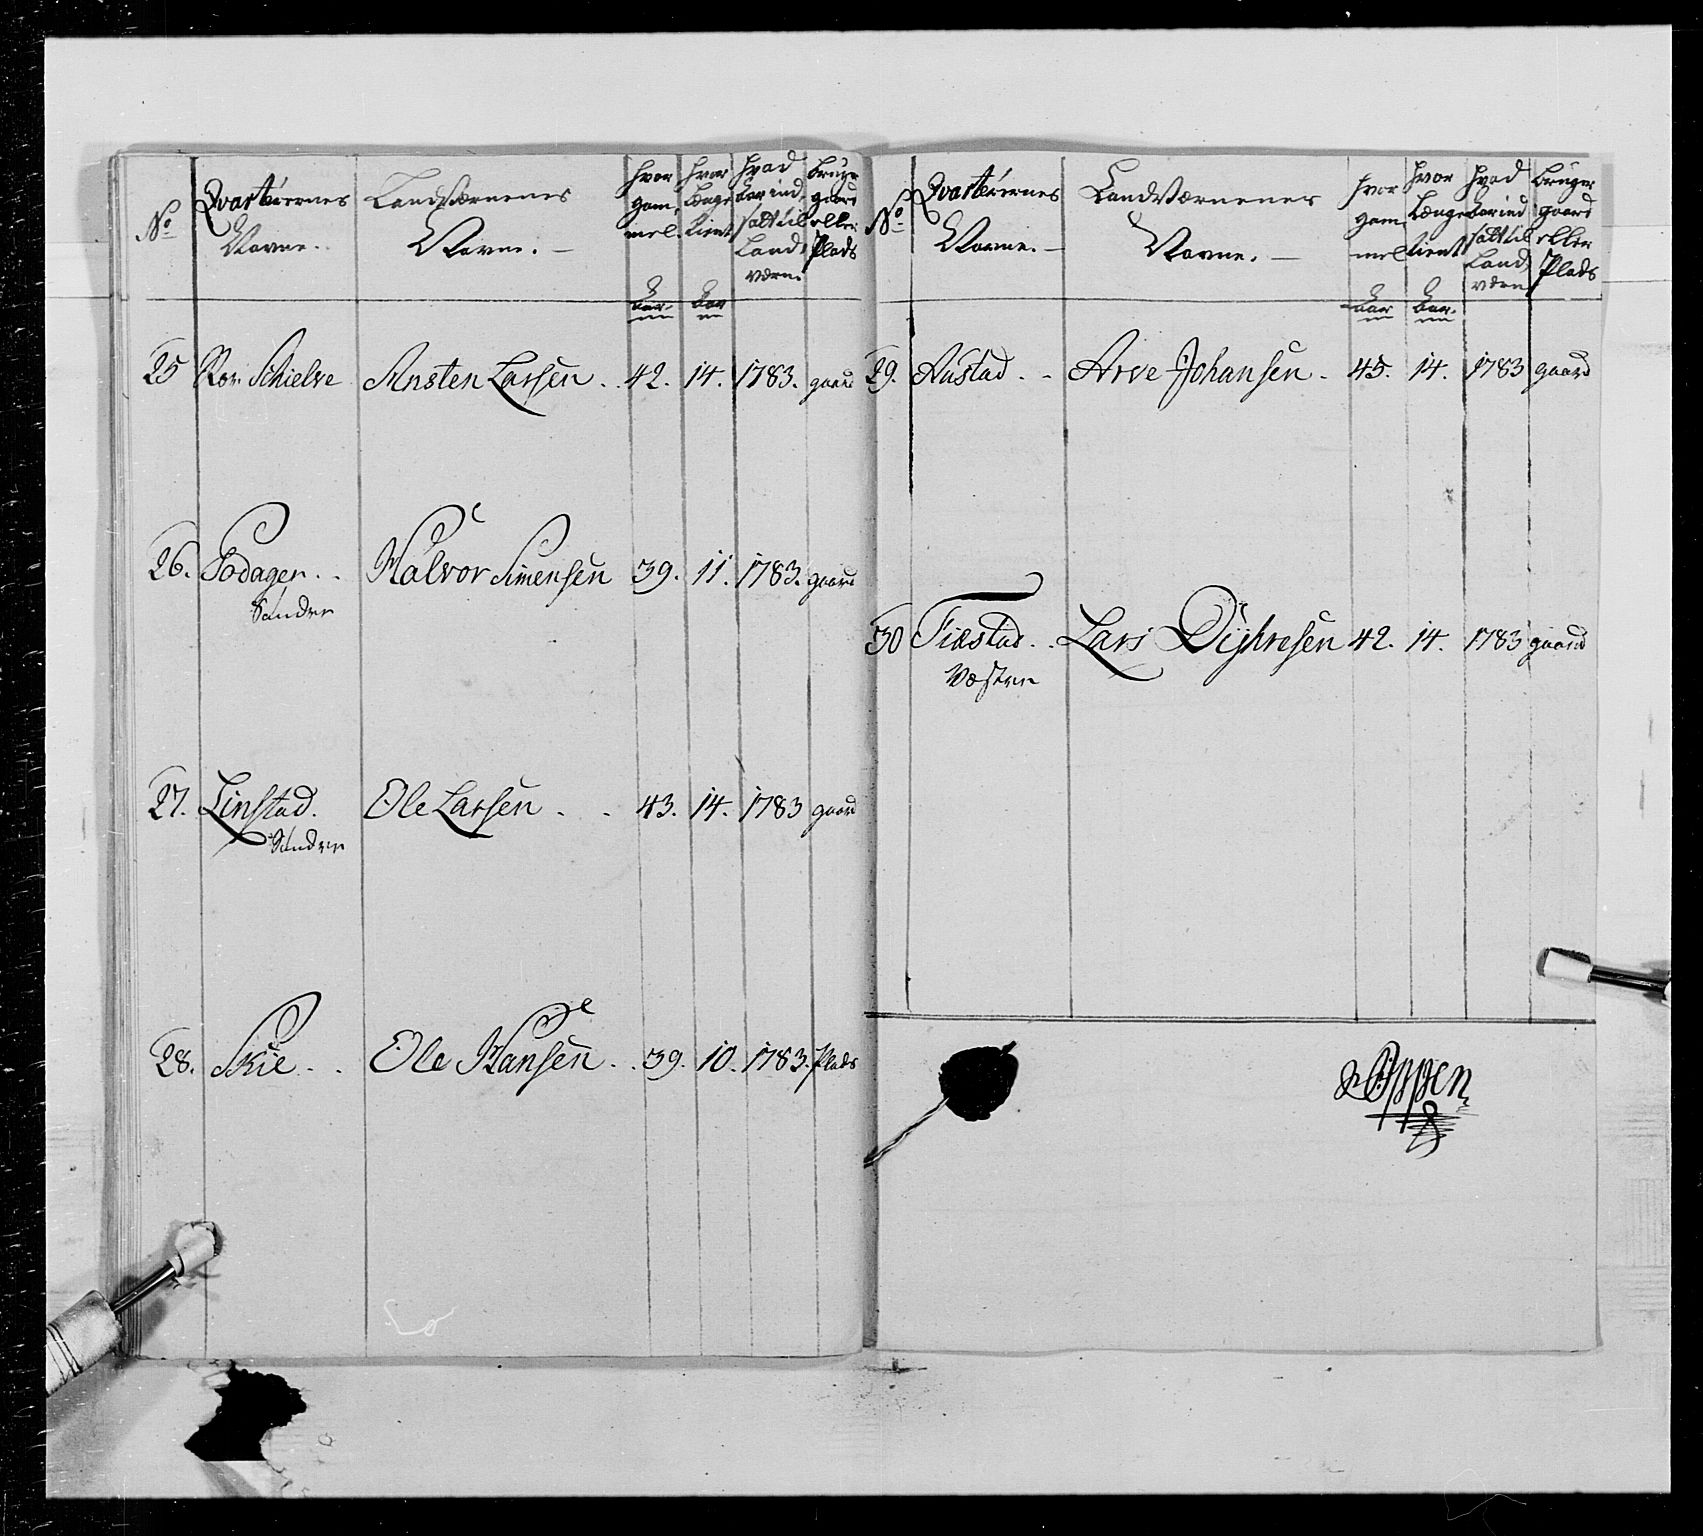 No Qvarteerernes Navne. Landværnenes Navne. — hvor gammel. Aar hvor Længe tient Aar hvad Aar indsatt til Landværn. bruger gaard eller Plads
25 Nor: Schielve Ansten Larsen . . 42. 14. 1783. gaard
26. Sodager . . Halvor Simensen 39. 11. 1783. gaard
Søndre
27. Linstad. Ole Larsen . . 43. 14. 1783 gaard
Søndre
28. Skie . . Ole Hansen . . 39. 10. 1783. Plads
No Qvarteerernes Navne. — Landværnenes Navne. — hvor gammel Aar hvor Længe tient Aar. hvad Aar indsatt til Landværn bruger gaard eller Plads
29. Austad . . Arve Johansen . 45. 14. 1783 gaard
30 Fiæstad . . Lars Dyhresen 42. 14. 1783 gaard
Væstre
Oppen